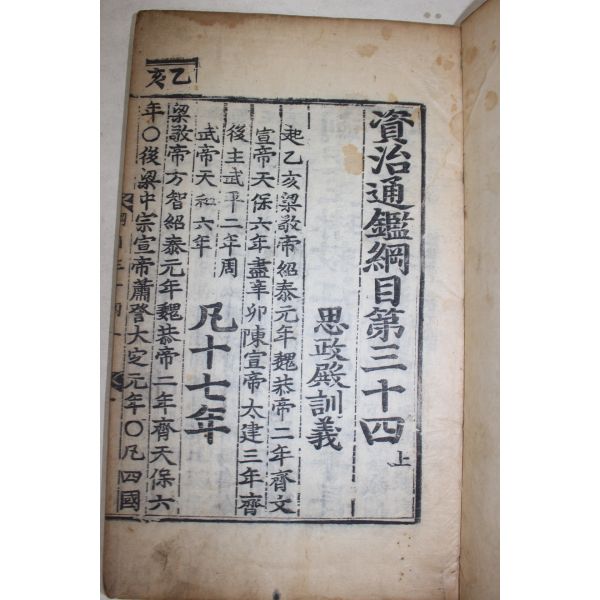 乙亥
資治通鑑綱目第三十四上
思政殿訓義
起乙亥梁敬帝紹泰元年魏恭帝二年齊文
宣帝天保六年盡辛卯陳宣帝太建三年齊
後主武平二年周
武帝天和六年
凡十七年
梁敬帝方智紹泰元年魏恭帝二年齊天保六
年○後梁中宗宣帝蕭詧大定元年○凡四國